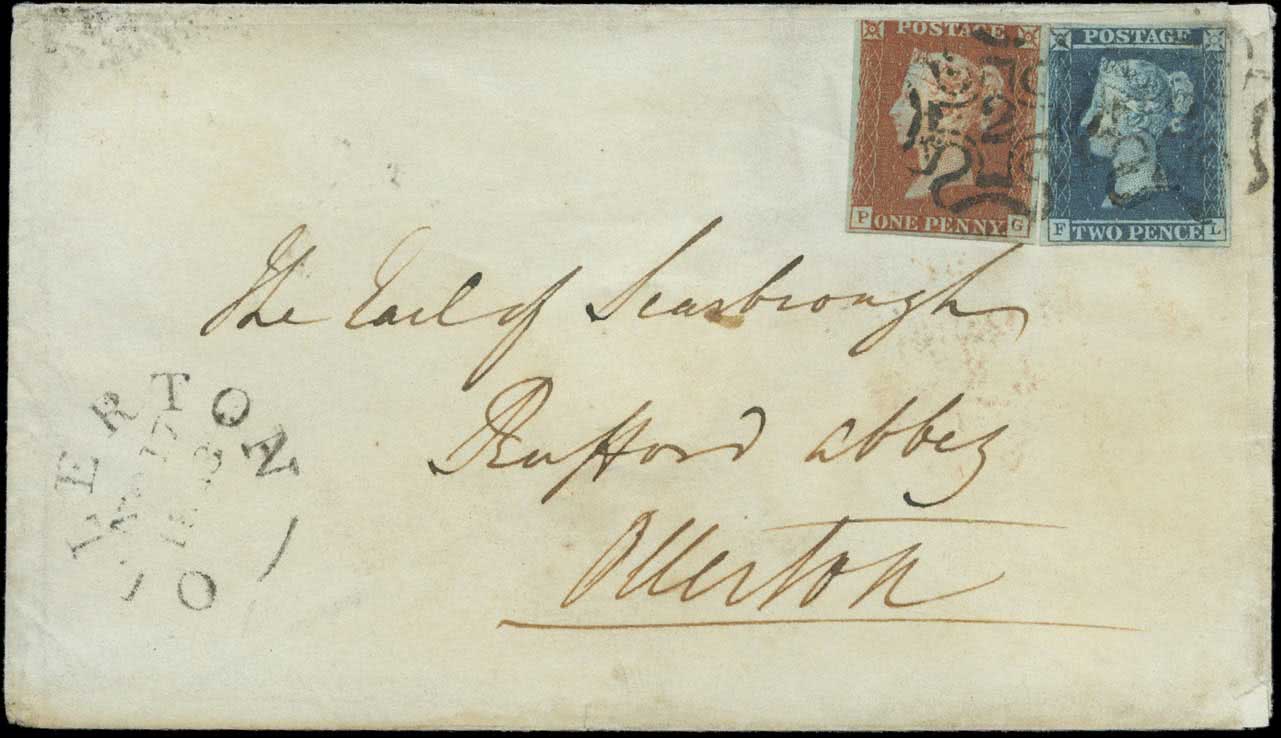 POSTAGE
P ONE PENNY G
2
POSTAGE
F TWO PENCE L
2
The Earl of Scarbrough
Rufford Abbey
Ollerton